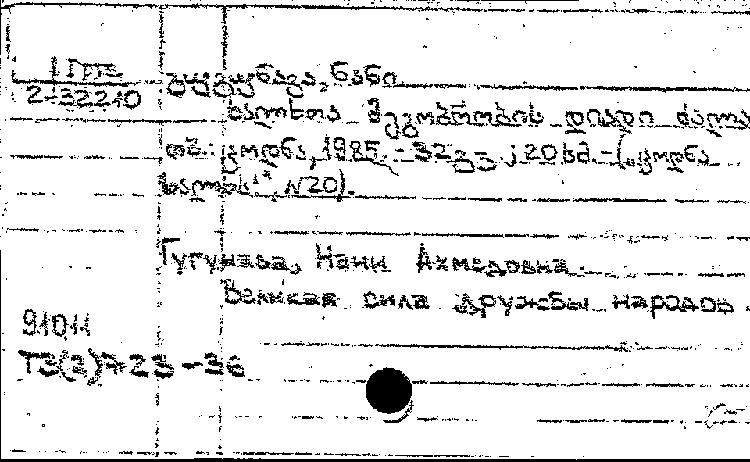 1 Грუз
2-32210
გუგუნავა, ნანი
ხალხთა მეგობრობის დიადი ძალა
თბ.: ცოდნა, 1985. - 32გვ.; 20სმ. - („ცოდნა
ხალხს“, N20).
Гугунава, Нани Ахмедовна.
Великая сила дружбы народов.
91011
Т3(2)723-36